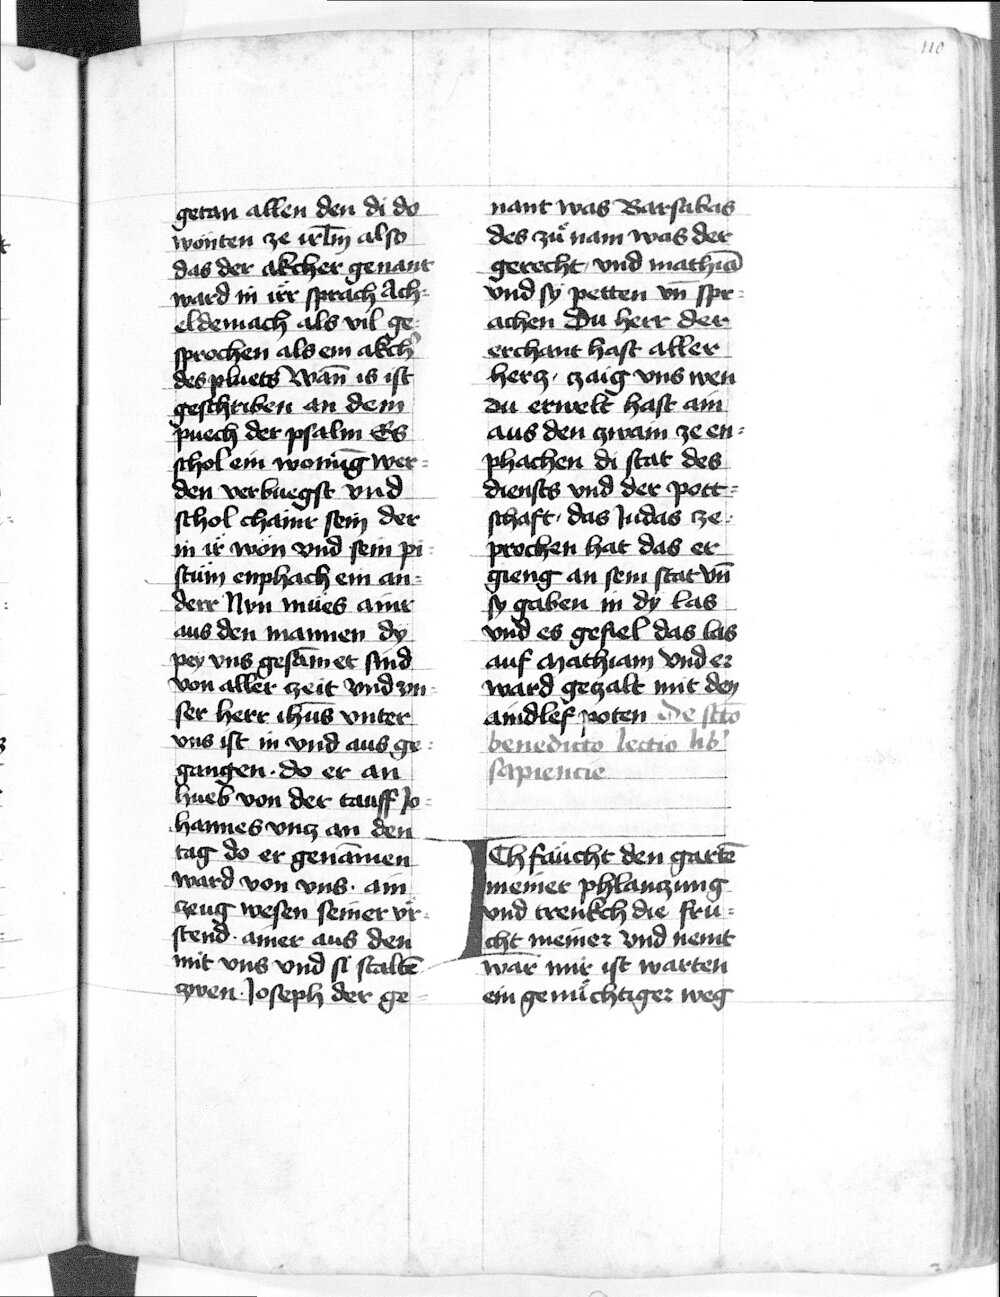 110
getan allen den di do
wonten ze irl̄m also
das der akcher genant
ward in irr sprach Ach-
eldemach als vil ge-
sprochen als ein akch͛
des pluets Wan̄ is ist
geschriben an dem
puech der psalm Es
schol ein wonūg wer-
den verbuegst vnd
schol chainr sein der
in ir won vnd sein pi-
stūm enphach ein an-
derr Nvn mues ainr
aus den mannen dy
pey vns gesāmet sind
von aller zeit vnd vn-
ser herr ihūs vnter
vns ist in vnd aus ge-
gangen · do er an
hueb von der tauff Jo-
hannes vncz an den
tag do er genāmen
ward von vns · ain
czeug wesen seiner vr-
stend · ainer aus den
mit vns vnd si staltē
zwen · Joseph der ge-
nant was Barsabas
des zůnam was der
gerecht / vnd mathiā
vnd sy petten vn̄ spr-
achen Du herr der
erchant hast aller
hercz · czaig vns wen
du erwelt hast ain
aus den czwain ze en-
phachen di stat des
diensts vnd der pott-
schaft / das Judas ze-
prochen hat das er
gieng an sein stat vn̄
sy gaben in dy las
vnd es gefiel das las
auf Mathiam vnd er
ward geczalt mit den
aindlef poten De sct̄o
benedicto lectio lib͛
sapiencie
ICh fäucht den gartē
meiner phlanczung
vnd trenkch die fru-
cht meiner vnd nemt
war mir ist warten
ein gemůchtiger weg